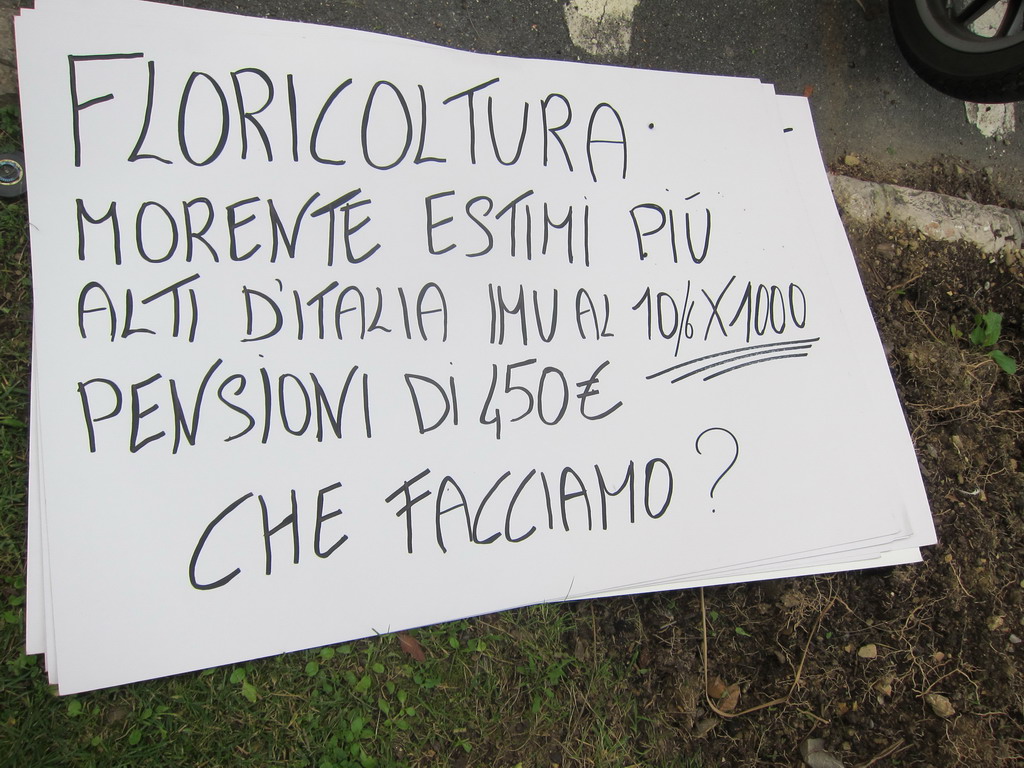 FLORICOLTURA
MORENTE ESTIMI PIÚ
ALTI D'ITALIA IMU AL 10/6 X 1000
PENSIONI DI 450€
CHE FACCIAMO?